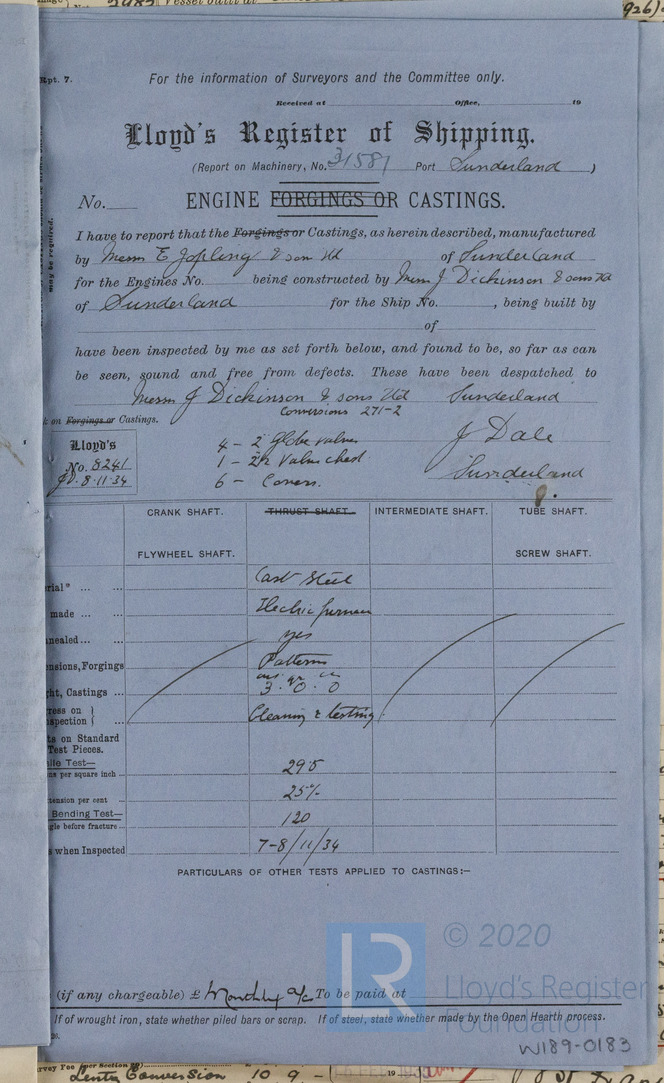 Rpt. 7.
For the information of Surveyors and the Committee only.
Received at Office, 19
Lloyd's Register of Shipping.
(Report on Machinery, No. 31581 Port Sunderland )
No.
ENGINE FORGINGS OR CASTINGS.
I have to report that the Forgings or Castings, as herein described, manufactured
by Messrs E Jopling & son Ltd of Sunderland
for the Engines No. being constructed by Messrs J Dickinson & sons Ltd
of Sunderland for the Ship No. , being built by
of
have been inspected by me as set forth below, and found to be, so far as can
be seen, sound and free from defects. These have been despatched to
Messrs J Dickinson & sons Ltd Sunderland
Conversions 271-2
on Forgings or Castings.
Lloyd's
No. 8241
JD. 8.11.34
4 - 2" globe valves
1 - valve chest
6 - Covers.
J Dale
Sunderland
CRANK SHAFT. THRUST SHAFT. INTERMEDIATE SHAFT. TUBE SHAFT.
FLYWHEEL SHAFT. SCREW SHAFT.
rial* ... ... Cast Steel
made ... ... Electric furnace
nealed ... ... yes
nsions, Forgings Patterns
cwt qr lbs
ht, Castings ... 3 . 0 . 0
ress on
spection ... Cleaning & testing
ts on Standard
Test Pieces.
ile Test—
ns per square inch 29.5
tension per cent 25%
Bending Test—
gle before fracture 120
s when Inspected 7-8/11/34
PARTICULARS OF OTHER TESTS APPLIED TO CASTINGS:—
(if any chargeable) £ Monthly a/c To be paid at
If of wrought iron, state whether piled bars or scrap. If of steel, state whether made by the Open Hearth process.
© 2020
LR
Lloyd's Register
Foundation
W189-0183
may be required.
Vessel built at
urvey Fee (per Section
Conversion 10 9